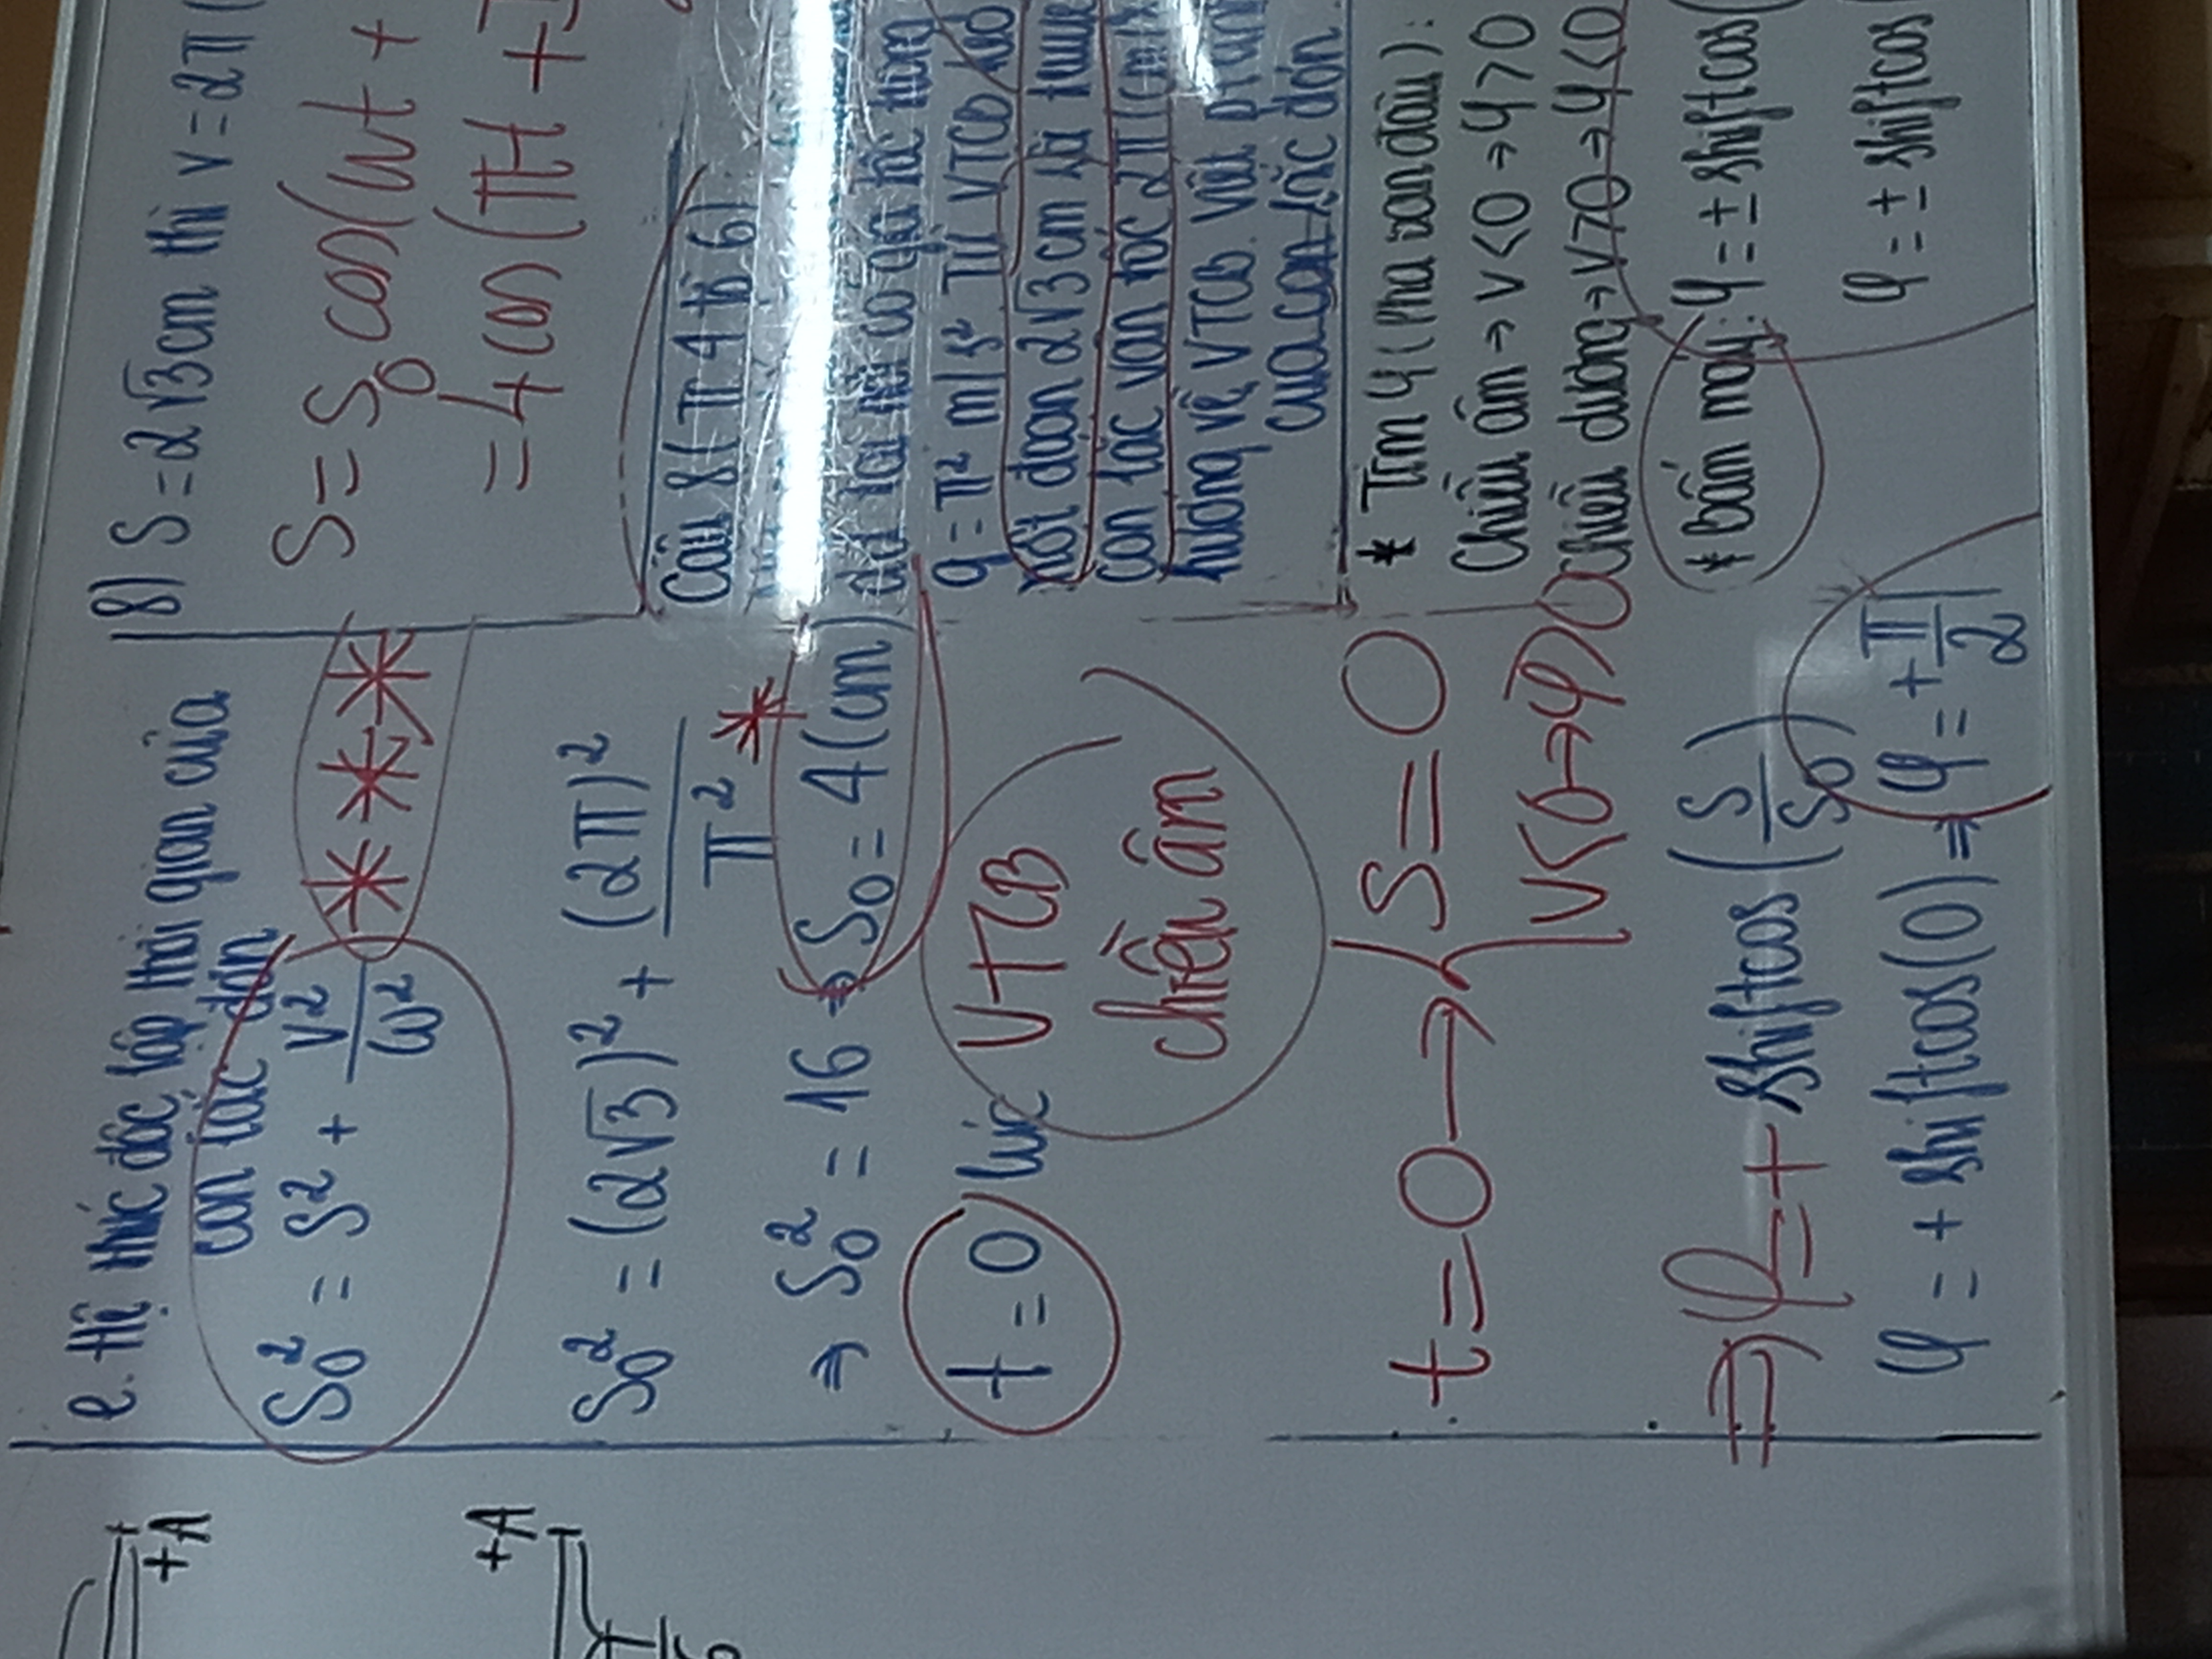 +A
+A
6
e. Hệ thức độc lập thời gian của
con lắc đơn
S₀² = S² + V²/ω² ***
S₀² = (2√3)² + (2π)²/π²
⇒ S₀² = 16 ⇒ S₀ = 4 (cm) *
t = 0 lúc VTCB
chiều âm
t = 0 → { S = 0
V < 0 → φ > 0
⇒ φ = + shiftcos(S/S₀)
φ = + shiftcos(0) ⇒ φ = +π/2
8) S = 2√3 cm thì v = 2π (
S = S₀ cos(ωt +
= 4 cos(πt +
Câu 8 (
g = π² m/s². Từ VTCB kéo
một đoạn 2√3 cm rồi
con lắc vận tốc 2π (cm/
hướng về VTCB. Viết
của con lắc đơn.
* Tìm φ (Pha ban đầu):
Chiều âm → v < 0 → φ > 0
Chiều dương → v > 0 → φ < 0
* Bấm máy: φ = ± shiftcos(
φ = ± shiftcos(